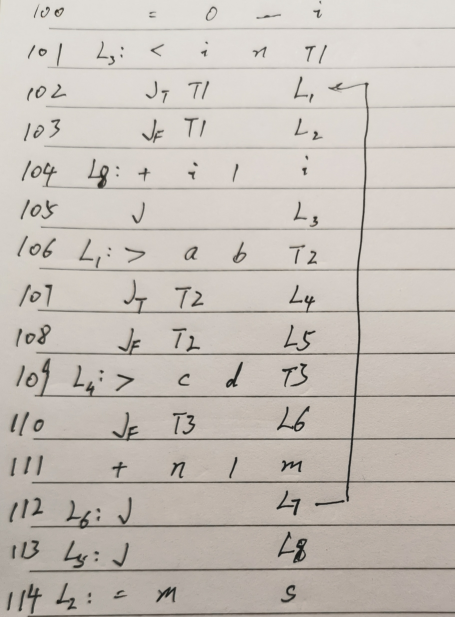 100 = 0 — i
101 L3: < i n T1
102 JT T1 L1
103 JF T1 L2
104 L8: + i 1 i
105 J L3
106 L1: > a b T2
107 JT T2 L4
108 JF T2 L5
109 L4: > c d T3
110 JF T3 L6
111 + n 1 m
112 L6: J L7
113 L5: J L8
114 L2: = m s